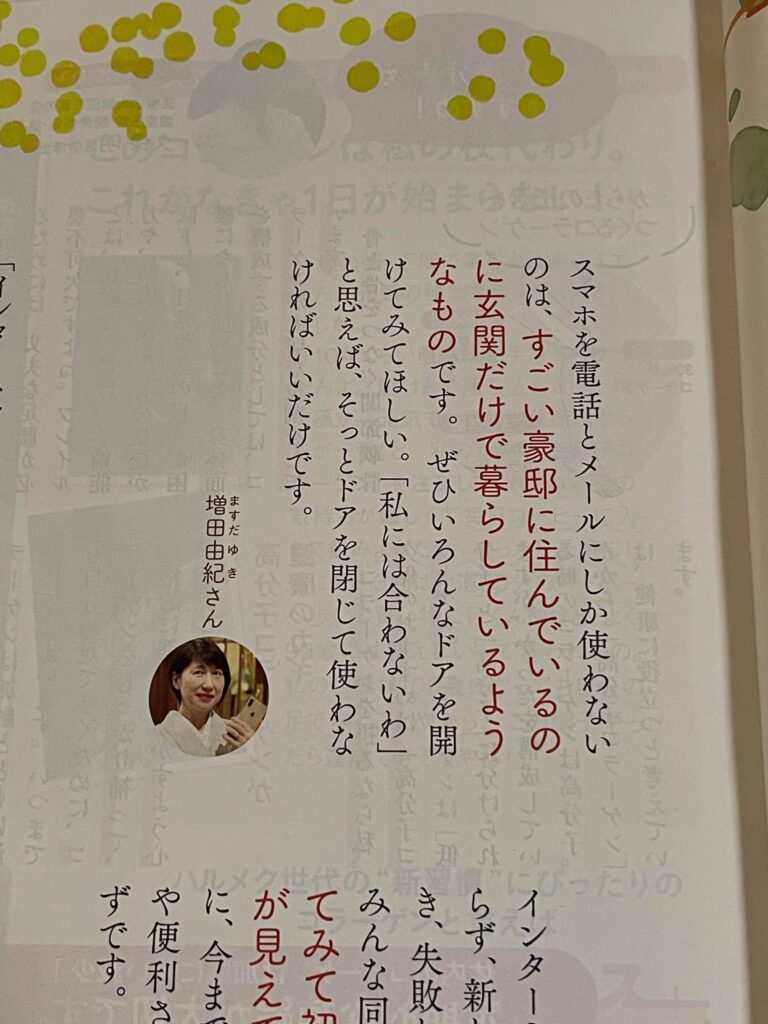 スマホを電話とメールにしか使わない
のは、すごい豪邸に住んでいるの
に玄関だけで暮らしているよう
なものです。ぜひいろんなドアを開
けてみてほしい。「私には合わないわ」
と思えば、そっとドアを閉じて使わな
ければいいだけです。
ますだ ゆき
増田由紀さん
インター
らず、新し
き、失敗し
みんな同
てみて初
が見えて
に、今まで
や便利さ
ずです。